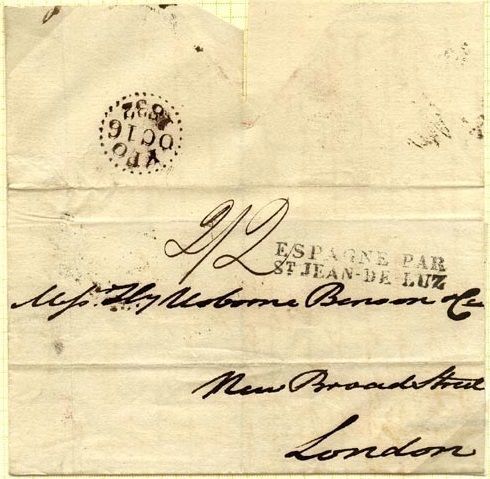 FPO
OC 16
1832
2/2
ESPAGNE PAR
ST JEAN-DE LUZ
Messrs. Hy Usborne Benson & Co
New Broad Street
London